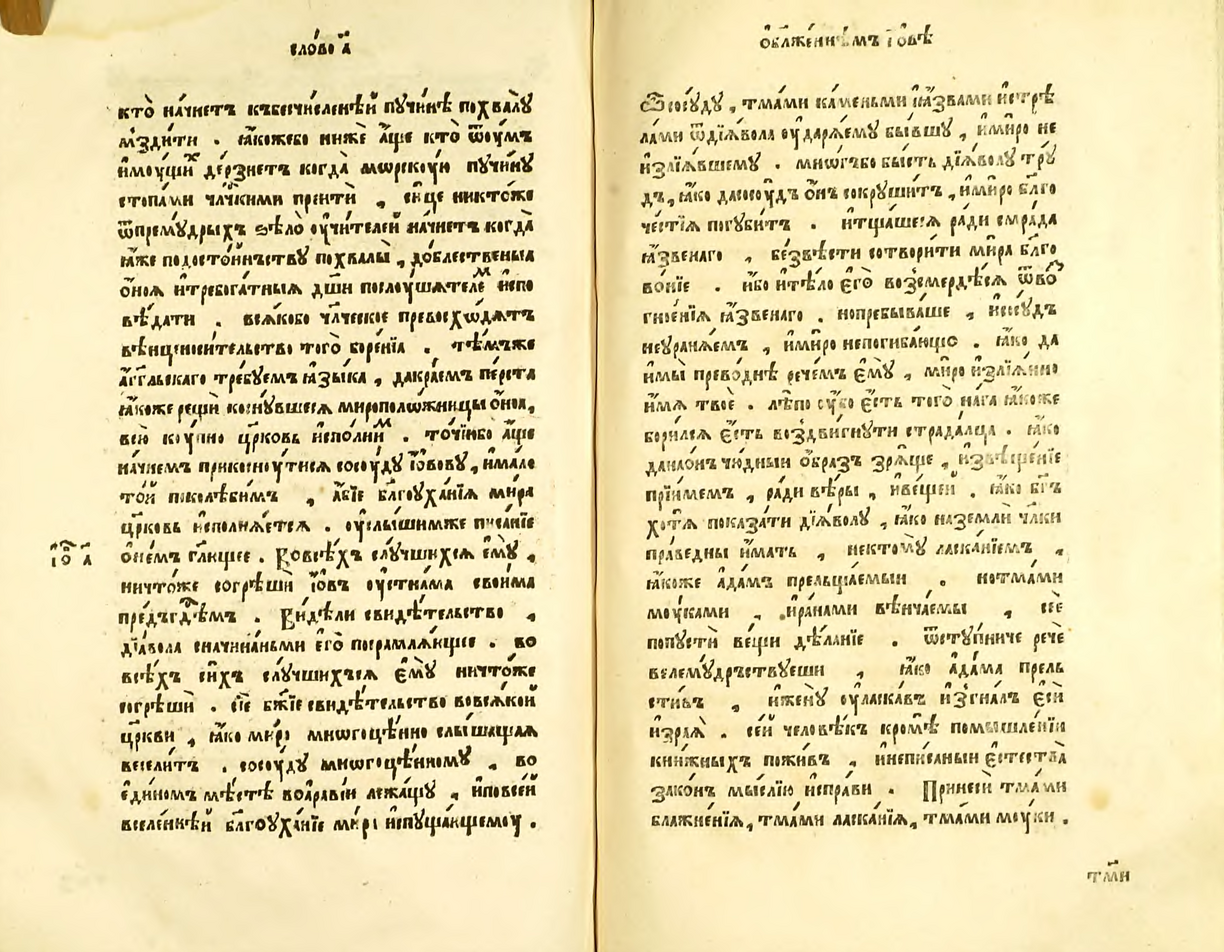 сло́во а҃
кто̀ на́чнетъ къбесчи́сленѣй пучи́нѣ похвалу̀
мз̾ди́ти . ꙗ҆́коже́бо нижѐ а҆́ще кто̀ ѿоу́мъ
и҆мꙋ́щиⷯ де́рзнетъ когда̀ мѡрскꙋ́ю пꙋчи́нꙋ
стопа́ми чл҃чкими прейтѝ , си́це никто́же
ѿпремꙋ́дрыхъ ѕѣло̀ ᲂу҆чи́телей на́чнетъ когда̀
ꙗ҆́же подосто́инъствꙋ похвалы̀ , до́блественыѧ
ѻ҆́ноѧ и҆требога́тныѧ дш҃и послꙋ́шателеⷨ и҆спо
вѣ́дати . всѧ́кобо чл҃ческое превосхо́дѧтъ
вѣнценоси́тельство того̀ боре́нїѧ . тѣ́мъже
а҆́гг҃льскаго тре́бꙋемъ ꙗ҆зы́ка , дакра́емъ пе́рста
ꙗ҆́коже рещѝ коснꙋ́вшесѧ мѵрополо́жницы ѻ҆́ноѧ,
всю̀ кꙋ́пно цр҃ковь и҆спо́лниⷨ . то́чїюбо а҆́ще
на́чнемъ прикоснꙋ́тисѧ сосꙋ́дꙋ і҆́ѡвовꙋ , и҆ма́ло
то́й поколѣ́бимъ , а҆́бїе бл҃гоуха́нїѧ мѵ́ра
цр҃ковь и҆сполнѧ́етсѧ . ᲂу҆слы́шимже писа́нїе
ѻ҆не́мъ гл҃ющее . Вовсѣ́хъ слꙋ́чшихсѧ є҆мꙋ̀ ,
і҆́ѡ҃ а҃
ничто́же согрѣшѝ і҆́ѡвъ ᲂу҆стна́ма свои́ма
предъгдⷭ҇емъ . Ви́дѣли свидѣ́тельство ,
дїа́вола сначина́ньми є҆го̀ посрамлѧ́ющее . во
всѣ́хъ си́хъ слꙋ́чшихъсѧ є҆мꙋ̀ ничто́же
согрѣшѝ . сїѐ бж҃їе свидѣ́тельство вовсѧ́кой
цр҃кви , ꙗ҆́ко мѵ́ро многоцѣ́нно слы́шащаѧ
весели́тъ . сосꙋ́дꙋ многоцѣ́нномꙋ , во
є҆ди́номъ мѣ́стѣ воара́вїи лежа́щꙋ , и҆повсе́й
вселе́ннѣй бл҃гоуха́нїе мѵ́ра и҆спꙋща́ющемоу .
ѻ҆бл҃же́ннѣмъ і҆́ѡвѣ
Ѽсосꙋ́дꙋ , тма́ми ка́меньми ꙗ҆́звами и҆стрѣ
ла́ми ѿдїѧ́вола ᲂу҆дарѧ́емꙋ бы́вшꙋ , и҆мѵ́ро не
и҆злїѧ́вшемꙋ . мно́гъбо бы́сть дїѧ́волꙋ трꙋ́
дъ, ꙗ҆́ко дасосꙋ́дъ ѻ҆́нъ сокрꙋши́тъ , и҆мѵ́ро бл҃го
че́стїѧ погꙋби́тъ . и҆тща́шесѧ ра́ди смра́да
ꙗ҆́звенаго , без̾вѣ́сти сотвори́ти мѵ́ра бл҃го
во́нїе . и҆́бо и҆тѣ́ло є҆го̀ воз̾смердѣ́сѧ ѿвоⷥ
гное́нїѧ ꙗ҆́звенаго . нопребыва́ше , и҆сосꙋ́дъ
неꙋранѧ́емъ , и҆мѵ́ро непогиба́ющо . ꙗ҆́ко да
и҆мы̀ преводнѣ̀ рече́мъ є҆мꙋ̀ , мѵ́ро и҆злїѧ́нно
и҆́мѧ твоѐ . лѣ́по ᲂу҆́бо є҆́сть того̀ на́га ꙗ҆́коже
бори́лсѧ є҆́сть воз̾дви́гнꙋти страда́лца . ꙗ҆́ко
данаѻ҆́нъ чю́дный ѻ҆́бразъ зрѧ́ще , и҆звѣще́нїе
прїи́мемъ , ра́ди вѣ́ры , и҆веще́й . ꙗ҆́ко бг҃ъ
хотѧ̀ показа́ти дїѧ́волꙋ , ꙗ҆́ко наземлѝ чл҃ки
пра́ведны и҆́мать , нектомꙋ̀ ласка́нїемъ ,
ꙗ҆́коже а҆да́мъ прельща́емыи . нотма́ми
мꙋ́ками , и҆ра́нами вѣнча́емы , сїѐ
попꙋстѝ ве́щи дѣ́ланїе . ѿстꙋ́пниче речѐ
велемꙋ́дръствꙋеши , ꙗ҆́ко а҆да́ма прель
сти́въ , и҆женꙋ̀ ᲂу҆ласка́въ и҆згна́лъ є҆сѝ
и҆зраѧ̀ . се́й человѣ́къ кромѣ̀ помышле́нїи
кни́жныхъ пожи́въ , и҆непи́саныи є҆стества̀
зако́нъ мы́слїю и҆спра́ви . Принесѝ тма́ми
блаже́нїѧ, тма́ми ласка́нїѧ, тма́ми мꙋ́ки .
тма́ми